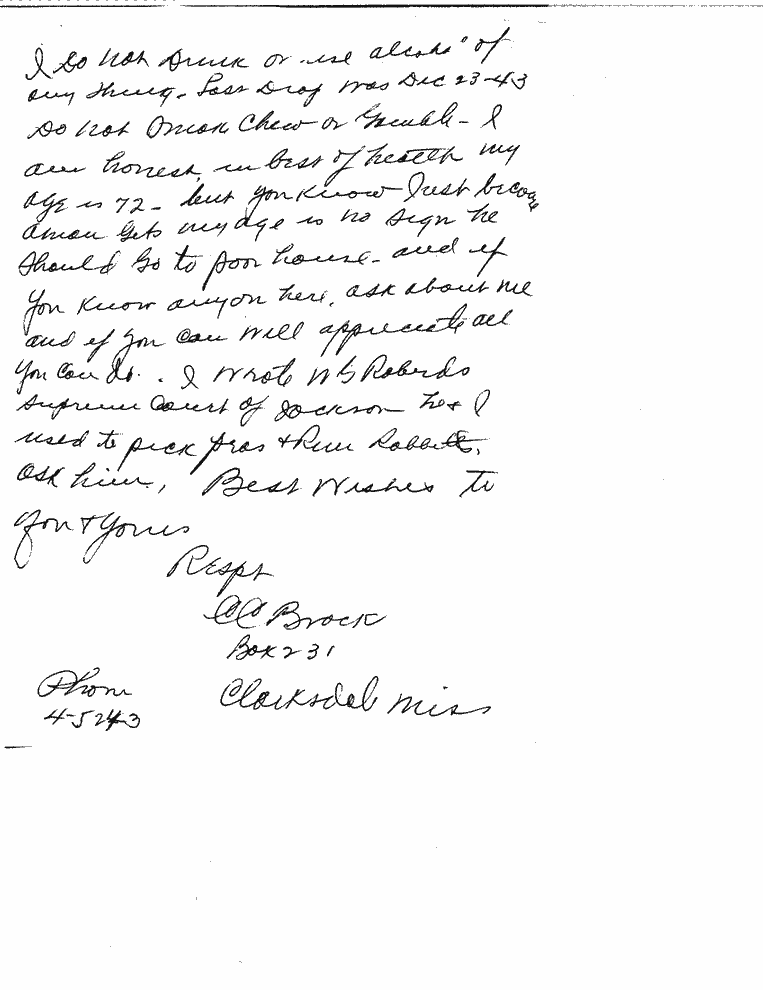 I Do not Drink or use alcohol of
any thing. Last Drop was Dec 23-43
Do not Smok Chew or Gamble - I
am honest, in best of health my
age is 72 - but you know Just because
a man gets my age is no sign he
should go to poor house - and if
you know anyon here, ask about me
and if you can will appreciate all
you can do. I wrote W G Roberds
Supreme Court of Jackson he & I
used to pick peas & Run Rabbits,
ask him, Best Wishes to
you & yours
Respt
CC Brock
Box 231
Phone
Clarksdale Miss
4-5243